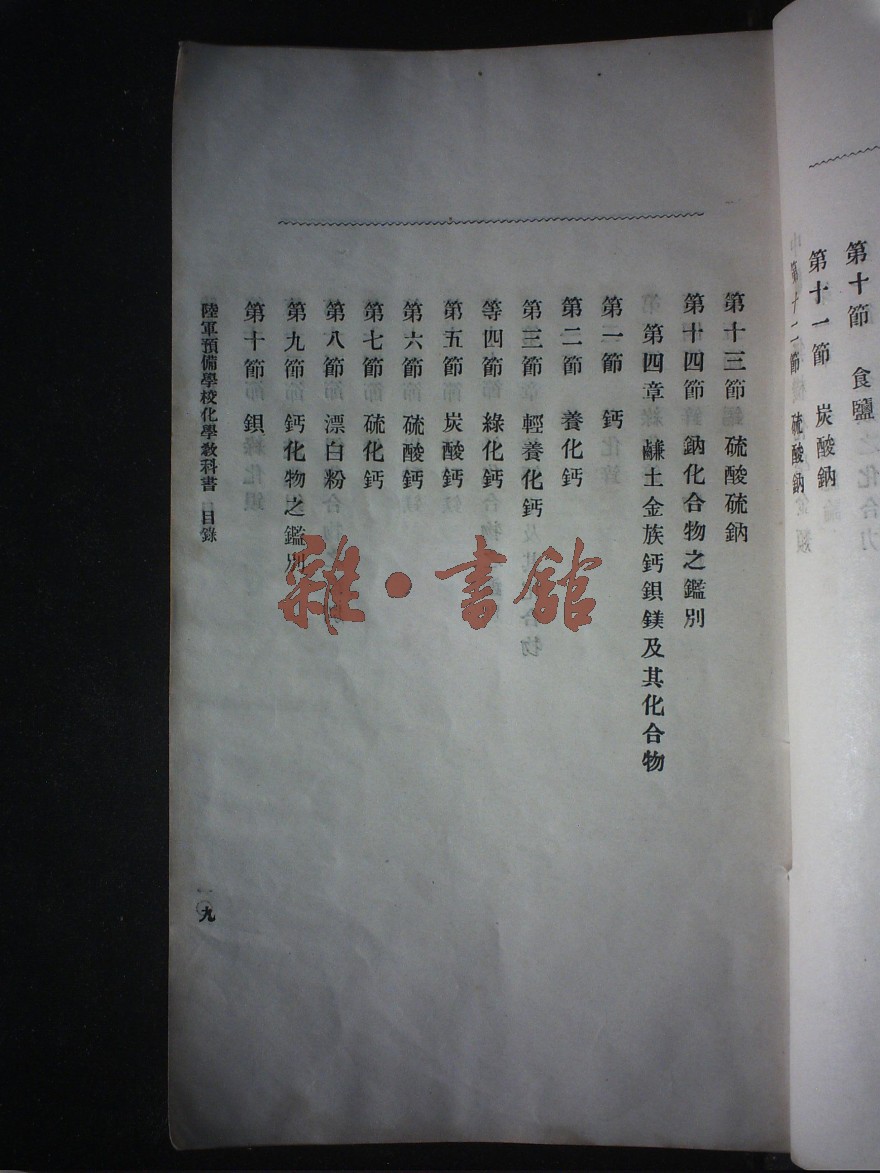 第十節　食鹽
第十一節　炭酸鈉
第十二節　硫酸鈉
第十三節　硫酸硫鈉
第十四節　鈉化合物之鑑別
第四章　鹻土金族鈣鋇鎂及其化合物
第一節　鈣
第二節　養化鈣
第三節　輕養化鈣
等四節　綠化鈣
第五節　炭酸鈣
第六節　硫酸鈣
第七節　硫化鈣
第八節　漂白粉
第九節　鈣化物之鑑別
第十節　鋇
陸軍預備學校化學教科書　目錄
九
雜・書館